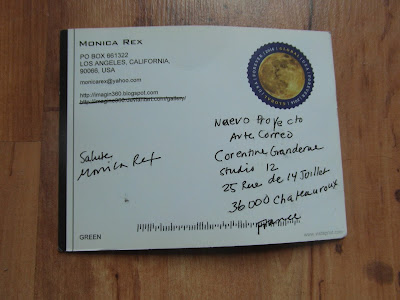 MONICA REX
PO BOX 661322
LOS ANGELES, CALIFORNIA,
90066, USA
monicarex@yahoo.com
http://imagin360.blogspot.com
GLOBAL
FOREVER
2014
Nuevo Proyecto
Arte Correo
Corentine Granderne
Studio 12
25 Rue de 14 Juillet
36000 Chateauroux
France
Salute
Monica Rex
GREEN